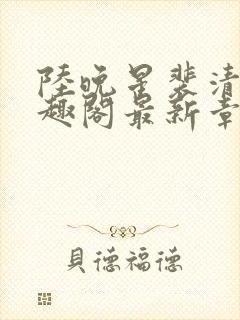 陸晚星裴清
趣閣最新章
貝德福德